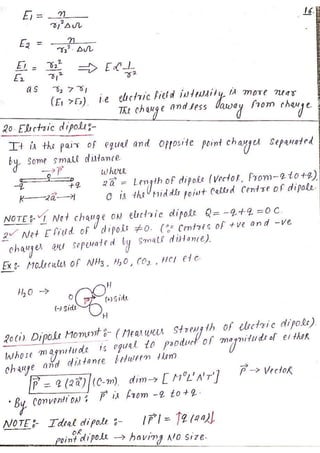 16
E₁ = n / r₁² ΔΩ
E₂ = n / r₂² ΔΩ
E₁/E₂ = r₂²/r₁² ⇒ E ∝ 1/r²
as r₂ > r₁
(E₁ > E₂) i.e electric field intensity is more near
The charge and less away from charge
20. Electric dipole:-
It is the pair of equal and opposite point charges separated
by some small distance.
→P⃗ where
-q O +q 2a⃗ = Length of dipole (vector, from -q to +q)
K— 2a —→ O is the middle point called centre of dipole
NOTE:- ✓1 Net charge on electric dipole Q = -q+q = 0 C.
2✓ Net E field of dipole ≠ 0. (∵ Centres of +ve and -ve
charges are seperated by small distance).
Ex:- Molecules of NH₃, H₂O, CO₂, HCl etc
H₂O → O H H
(-) side (+) side
20(i) Dipole Moment:- (Measures Strength of electric dipole)
Whose magnitude is equal to product of magnitude of either
charge and distance between them.
P⃗ = q(2a⃗) (C-m) dim → [M⁰L¹A¹T¹] P⃗ → Vector
· By convention: P⃗ is from -q to +q.
NOTE:- Ideal dipole :- |P⃗| = ↑q (2a↓)
OR
point dipole → having NO size.